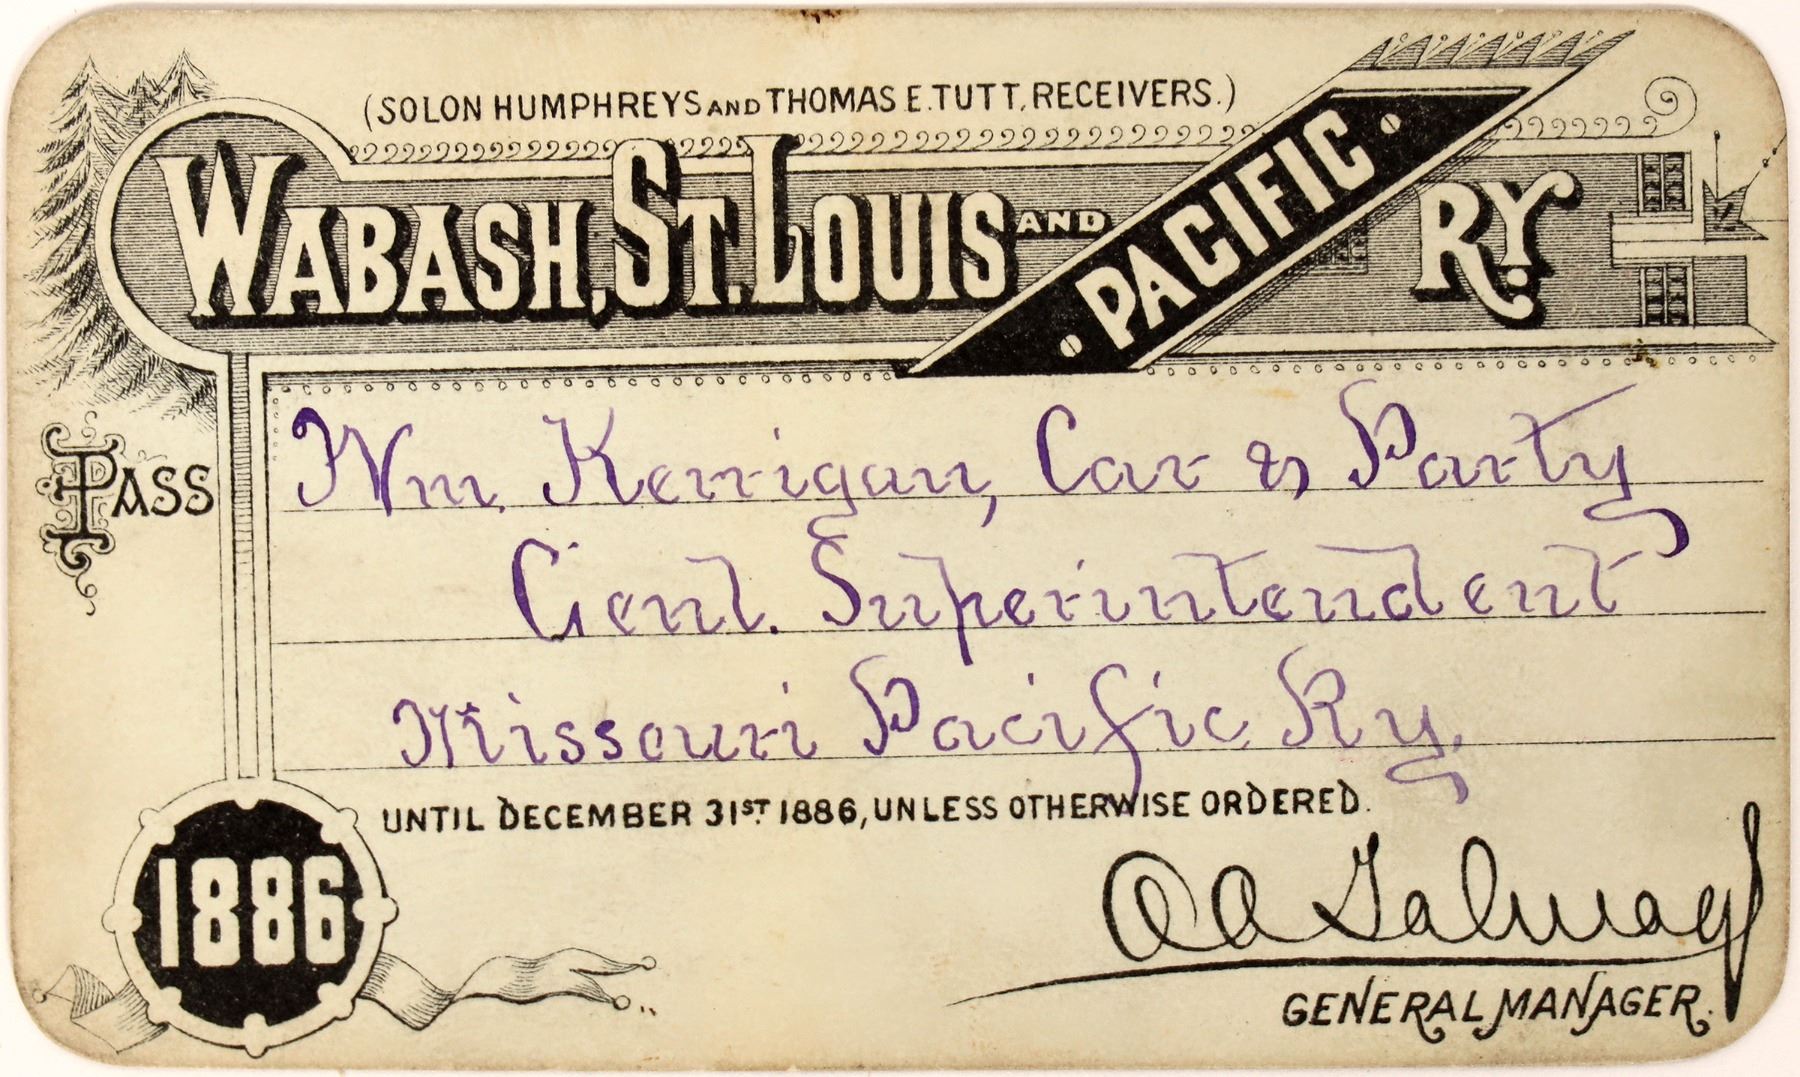 (SOLON HUMPHREYS AND THOMAS E. TUTT, RECEIVERS.)
WABASH, ST. LOUIS AND PACIFIC RY.
PASS Wm. Kerrigan, Car & Party
Genl. Superintendent
Missouri Pacific Ry.
UNTIL DECEMBER 31ST 1886, UNLESS OTHERWISE ORDERED.
1886
A A Talmage
GENERAL MANAGER.